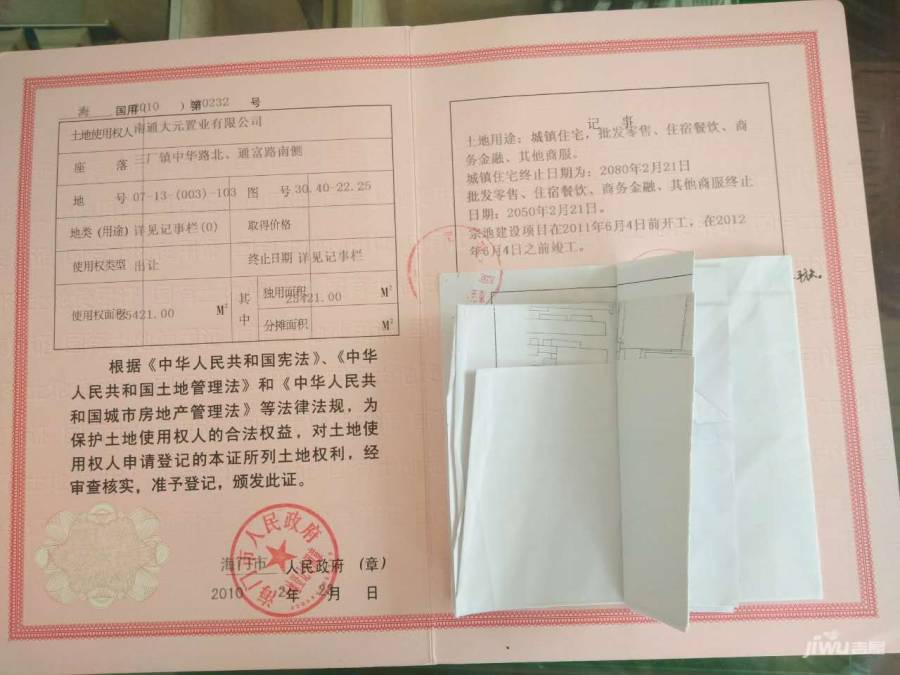 海 国用2010 ) 第0232 号
土地使用权人 南通大元置业有限公司
座 落 三厂镇中华路北、通富路南侧
地 号 07-13-(003)-103 图 号 30.40-22.25
地类(用途) 详见记事栏(0) 取得价格
使用权类型 出让 终止日期 详见记事栏
使用权面积 25421.00 M² 其中 独用面积 25421.00 M²
分摊面积 M²
根据《中华人民共和国宪法》、《中华
人民共和国土地管理法》和《中华人民共
和国城市房地产管理法》等法律法规，为
保护土地使用权人的合法权益，对土地使
用权人申请登记的本证所列土地权利，经
审查核实，准予登记，颁发此证。
海门市 人民政府 (章)
2010 年 2 月 日
海门市人民政府
记 事
土地用途：城镇住宅，批发零售、住宿餐饮、商
务金融、其他商服。
城镇住宅终止日期为：2080年2月21日
批发零售、住宿餐饮、商务金融、其他商服终止
日期：2050年2月21日。
宗地建设项目在2011年6月4日前开工，在2012
年6月4日之前竣工。
jiwu吉屋